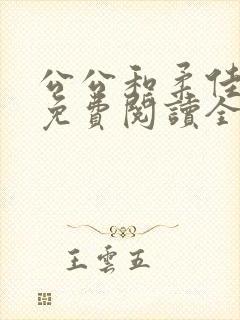 公公和柔佳
免費閱讀全
王雲五